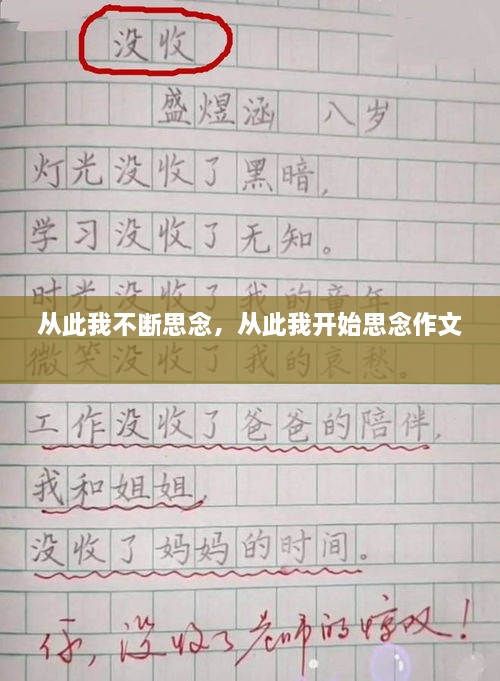 没收
盛煜涵 八岁
灯光没收了黑暗，
学习没收了无知。
时光没收了我的童年
从此我不断思念，从此我开始思念作文
微笑没收了我的哀愁。
工作没收了爸爸的陪伴，
我和姐姐，
没收了妈妈的时间。
你，没收了老师的惊叹！